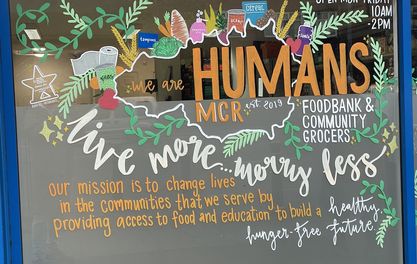 OPEN MON-FRIDAY
10AM
2PM
cereal
we are HUMANS
MCR est 2019
FOODBANK &
COMMUNITY
GROCERS
live more...worry less
our mission is to change lives
in the communities that we serve by
providing access to food and education to build a healthy,
hunger-free future.